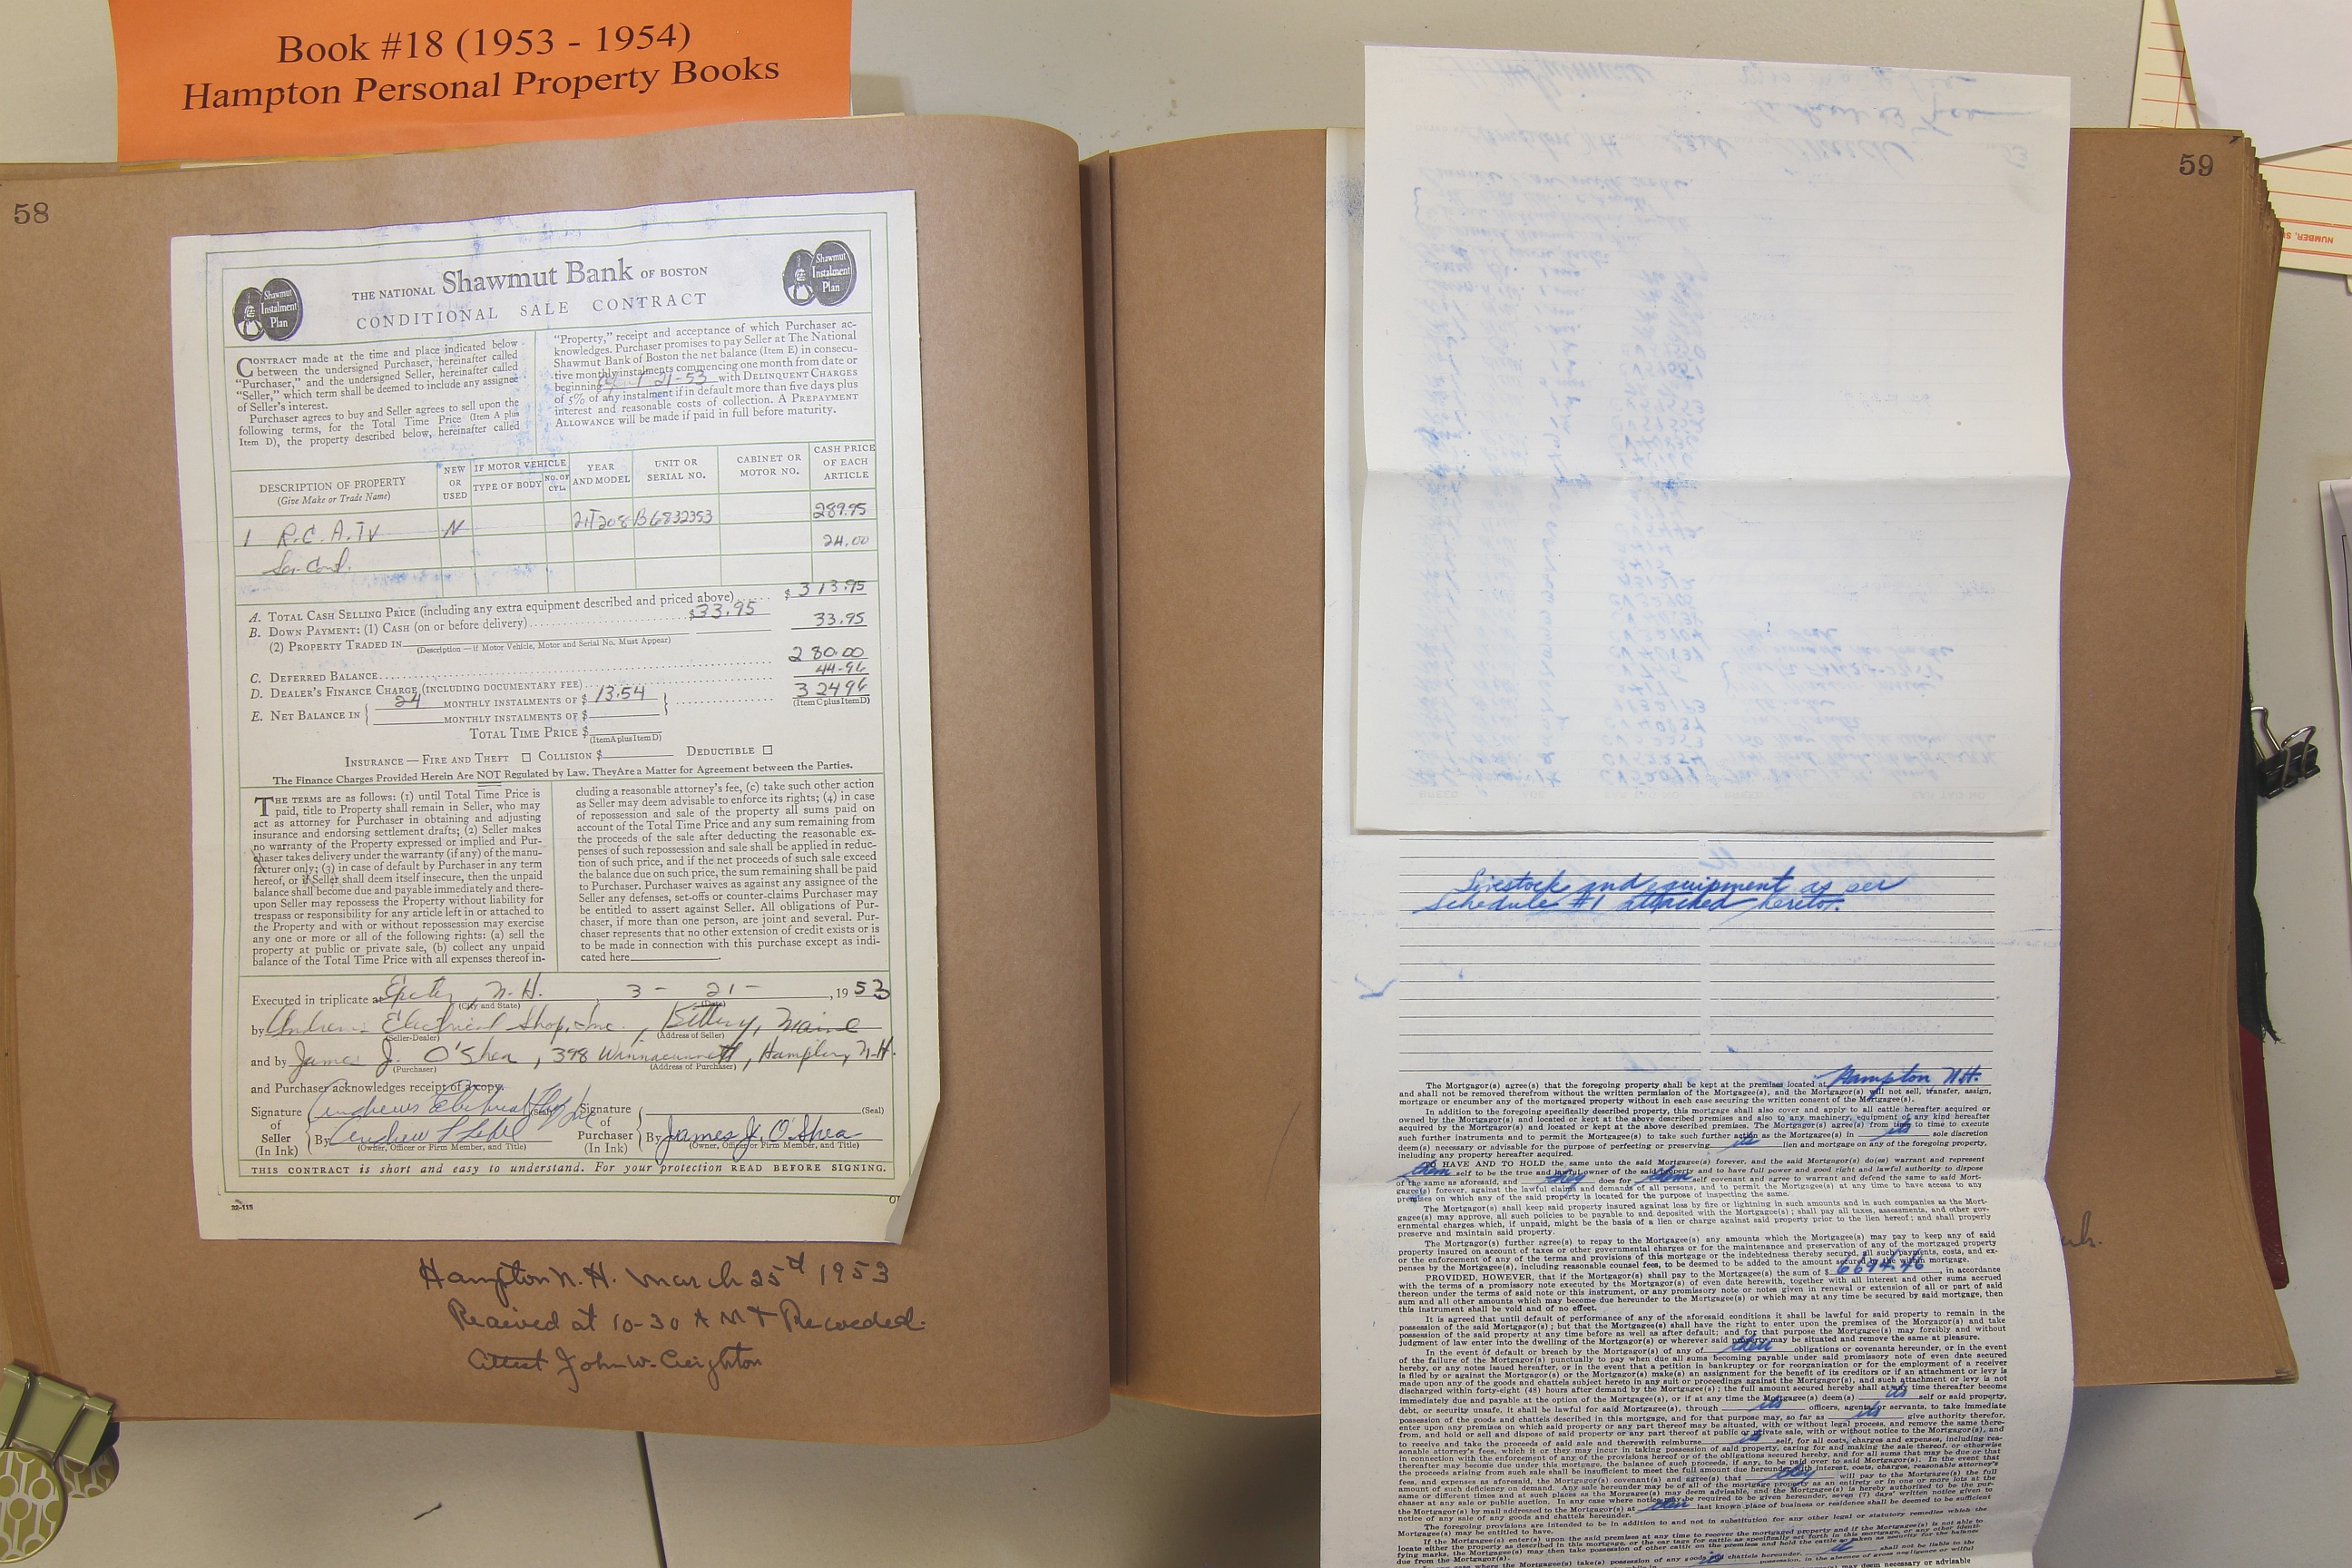 Book #18 (1953 - 1954)
Hampton Personal Property Books
58
Shawmut
Instalment
Plan
THE NATIONAL Shawmut Bank OF BOSTON
CONDITIONAL SALE CONTRACT
Shawmut
Instalment
Plan
CONTRACT made at the time and place indicated below
between the undersigned Purchaser, hereinafter called
"Purchaser," and the undersigned Seller, hereinafter called
"Seller," which term shall be deemed to include any assignee
of Seller's interest.
Purchaser agrees to buy and Seller agrees to sell upon the
following terms, for the Total Time Price (Item A plus
Item D), the property described below, hereinafter called
"Property," receipt and acceptance of which Purchaser ac-
knowledges. Purchaser promises to pay Seller at The National
Shawmut Bank of Boston the net balance (Item E) in consecu-
tive monthly instalments commencing one month from date or
beginning 21-53 with DELINQUENT CHARGES
of 5% of any instalment if in default more than five days plus
interest and reasonable costs of collection. A PREPAYMENT
ALLOWANCE will be made if paid in full before maturity.
DESCRIPTION OF PROPERTY
(Give Make or Trade Name)
NEW
OR
USED
IF MOTOR VEHICLE
TYPE OF BODY
NO. OF
CYL.
YEAR
AND MODEL
UNIT OR
SERIAL NO.
CABINET OR
MOTOR NO.
CASH PRICE
OF EACH
ARTICLE
1 R.C.A. TV N 21T208 B6832353 289.95
24.00
A. TOTAL CASH SELLING PRICE (including any extra equipment described and priced above) $ 313.95
B. DOWN PAYMENT: (1) CASH (on or before delivery) $33.95 33.95
(2) PROPERTY TRADED IN
(Description — if Motor Vehicle, Motor and Serial No. Must Appear)
C. DEFERRED BALANCE 280.00
D. DEALER'S FINANCE CHARGE (INCLUDING DOCUMENTARY FEE) 44.96
E. NET BALANCE IN { 24 MONTHLY INSTALMENTS OF $ 13.54 } 324.96
MONTHLY INSTALMENTS OF $
(Item C plus Item D)
TOTAL TIME PRICE $
(Item A plus Item D)
INSURANCE — FIRE AND THEFT ☐ COLLISION $ DEDUCTIBLE ☐
The Finance Charges Provided Herein Are NOT Regulated by Law. They Are a Matter for Agreement between the Parties.
THE TERMS are as follows: (1) until Total Time Price is
paid, title to Property shall remain in Seller, who may
act as attorney for Purchaser in obtaining and adjusting
insurance and endorsing settlement drafts; (2) Seller makes
no warranty of the Property expressed or implied and Pur-
chaser takes delivery under the warranty (if any) of the manu-
facturer only; (3) in case of default by Purchaser in any term
hereof, or if Seller shall deem itself insecure, then the unpaid
balance shall become due and payable immediately and there-
upon Seller may repossess the Property without liability for
trespass or responsibility for any article left in or attached to
the Property and with or without repossession may exercise
any one or more or all of the following rights: (a) sell the
property at public or private sale, (b) collect any unpaid
balance of the Total Time Price with all expenses thereof in-
cluding a reasonable attorney's fee, (c) take such other action
as Seller may deem advisable to enforce its rights; (4) in case
of repossession and sale of the property all sums paid on
account of the Total Time Price and any sum remaining from
the proceeds of the sale after deducting the reasonable ex-
penses of such repossession and sale shall be applied in reduc-
tion of such price, and if the net proceeds of such sale exceed
the balance due on such price, the sum remaining shall be paid
to Purchaser. Purchaser waives as against any assignee of the
Seller any defenses, set-offs or counter-claims Purchaser may
be entitled to assert against Seller. All obligations of Pur-
chaser, if more than one person, are joint and several. Pur-
chaser represents that no other extension of credit exists or is
to be made in connection with this purchase except as indi-
cated here
Executed in triplicate at Exeter, N.H. 3 - 21 - , 1953
(City and State) (Date)
by Andrews Electrical Shop, Inc., Kittery, Maine
(Seller-Dealer) (Address of Seller)
and by James J. O'Shea, 398 Winnacunnett, Hampton, N.H.
(Purchaser) (Address of Purchaser)
and Purchaser acknowledges receipt of a copy.
Signature
of
Seller
(In Ink)
Andrews Electrical Shop Inc
(Seal)
By Andrew
(Owner, Officer or Firm Member, and Title)
Signature
of
Purchaser
(In Ink)
(Seal)
By James J. O'Shea
(Owner, Officer or Firm Member, and Title)
THIS CONTRACT is short and easy to understand. For your protection READ BEFORE SIGNING.
22-115
Hampton N.H. March 25th 1953
Received at 10-30 A M & Recorded.
Attest John W. Creighton
59
NUMBER, S
Livestock and equipment as per
Schedule #1 attached hereto.
The Mortgagor(s) agree(s) that the foregoing property shall be kept at the premises located at Hampton N.H.
and shall not be removed therefrom without the written permission of the Mortgagee(s), and the Mortgagor(s) will not sell, transfer, assign,
mortgage or encumber any of the mortgaged property without in each case securing the written consent of the Mortgagee(s).
In addition to the foregoing specifically described property, this mortgage shall also cover and apply to all cattle hereafter acquired or
owned by the Mortgagor(s) and located or kept at the above described premises and also to any machinery, equipment of any kind hereafter
acquired by the Mortgagor(s) and located or kept at the above described premises. The Mortgagor(s) agree(s) from time to time to execute
such further instruments and to permit the Mortgagee(s) to take such further action as the Mortgagee(s) in its sole discretion
deem(s) necessary or advisable for the purpose of perfecting or preserving its lien and mortgage on any of the foregoing property,
including any property hereafter acquired.
TO HAVE AND TO HOLD the same unto the said Mortgagee(s) forever, and the said Mortgagor(s) do(es) warrant and represent
them self to be the true and lawful owner of the said property and to have full power and good right and lawful authority to dispose
of the same as aforesaid, and they does for them self covenant and agree to warrant and defend the same to said Mort-
gagee(s) forever, against the lawful claims and demands of all persons, and to permit the Mortgagee(s) at any time to have access to any
premises on which any of the said property is located for the purpose of inspecting the same.
The Mortgagor(s) shall keep said property insured against loss by fire or lightning in such amounts and in such companies as the Mort-
gagee(s) may approve, all such policies to be payable to and deposited with the Mortgagee(s); shall pay all taxes, assessments, and other gov-
ernmental charges which, if unpaid, might be the basis of a lien or charge against said property prior to the lien hereof; and shall properly
preserve and maintain said property.
The Mortgagor(s) further agree(s) to repay to the Mortgagee(s) any amounts which the Mortgagee(s) may pay to keep any of said
property insured on account of taxes or other governmental charges or for the maintenance and preservation of any of the mortgaged property
or the enforcement of any of the terms and provisions of this mortgage or the indebtedness thereby secured, all such payments, costs, and ex-
penses by the Mortgagee(s), including reasonable counsel fees, to be deemed to be added to the amount secured by the within mortgage.
PROVIDED, HOWEVER, that if the Mortgagor(s) shall pay to the Mortgagee(s) the sum of $ 6694.46, in accordance
with the terms of a promissory note executed by the Mortgagor(s) of even date herewith, together with all interest and other sums accrued
thereon under the terms of said note or this instrument, or any promissory note or notes given in renewal or extension of all or part of said
sum and all other amounts which may become due hereunder to the Mortgagee(s) or which may at any time be secured by said mortgage, then
this instrument shall be void and of no effect.
It is agreed that until default of performance of any of the aforesaid conditions it shall be lawful for said property to remain in the
possession of the said Mortgagor(s); but that the Mortgagee(s) shall have the right to enter upon the premises of the Mortgagor(s) and take
possession of the said property at any time before as well as after default; and for that purpose the Mortgagee(s) may forcibly and without
judgment of law enter into the dwelling of the Mortgagor(s) or wherever said property may be situated and remove the same at pleasure.
In the event of default or breach by the Mortgagor(s) of any of their obligations or covenants hereunder, or in the event
of the failure of the Mortgagor(s) punctually to pay when due all sums becoming payable under said promissory note of even date secured
hereby, or any notes issued hereafter, or in the event that a petition in bankruptcy or for reorganization or for the employment of a receiver
is filed by or against the Mortgagor(s) or the Mortgagor(s) make(s) an assignment for the benefit of its creditors or if an attachment or levy is
made upon any of the goods and chattels subject hereto in any suit or proceedings against the Mortgagor(s), and such attachment or levy is not
discharged within forty-eight (48) hours after demand by the Mortgagee(s); the full amount secured hereby shall at any time thereafter become
immediately due and payable at the option of the Mortgagee(s), or if at any time the Mortgagee(s) deem(s) its self or said property,
debt, or security unsafe, it shall be lawful for said Mortgagee(s), through its officers, agents, or servants, to take immediate
possession of the goods and chattels described in this mortgage, and for that purpose may, so far as its give authority therefor,
enter upon any premises on which said property or any part thereof may be situated, with or without legal process, and remove the same there-
from, and hold or sell and dispose of said property or any part thereof at public or private sale, with or without notice to the Mortgagor(s), and
to receive and take the proceeds of said sale and therewith reimburse its self, for all costs, charges and expenses, including rea-
sonable attorney's fees, which it or they may incur in taking possession of said property, caring for and making the sale thereof, or otherwise
in connection with the enforcement of any of the provisions hereof or of the obligations secured hereby, and for all sums that may be due or that
thereafter may become due under this mortgage, the balance of such proceeds, if any, to be paid over to said Mortgagor(s). In the event that
the proceeds arising from such sale shall be insufficient to meet the full amount due hereunder with interest, costs, charges, reasonable attorney's
fees, and expenses as aforesaid, the Mortgagor(s) covenant(s) and agree(s) that they will pay to the Mortgagee(s) the full
amount of such deficiency on demand. Any sale hereunder may be of all of the mortgaged property as an entirety or in one or more lots at the
same or different times and at such places as the Morgagee(s) may deem advisable, and the Mortgagee(s) is hereby authorized to be the pur-
chaser at any sale or public auction. In any case where notice may be required to be given hereunder, seven (7) days' written notice given to
the Mortgagor(s) by mail addressed to the Mortgagor(s) at their last known place of business or residence shall be deemed to be sufficient
notice of any sale of any goods and chattels hereunder.
The foregoing provisions are intended to be in addition to and not in substitution for any other legal or statutory remedies which the
Mortgagee(s) may be entitled to have.
If the Mortgagee(s) enter(s) upon the said premises at any time to recover the mortgaged property and if the Mortgagee(s) is not able to
locate either the property as described in this mortgage, or the ear tags for cattle as specifically set forth in this mortgage, or any other identi-
fying marks, the Mortgagee(s) may then take possession of other cattle on the premises and hold the cattle so taken as security for the balance
due from the Mortgagor(s).